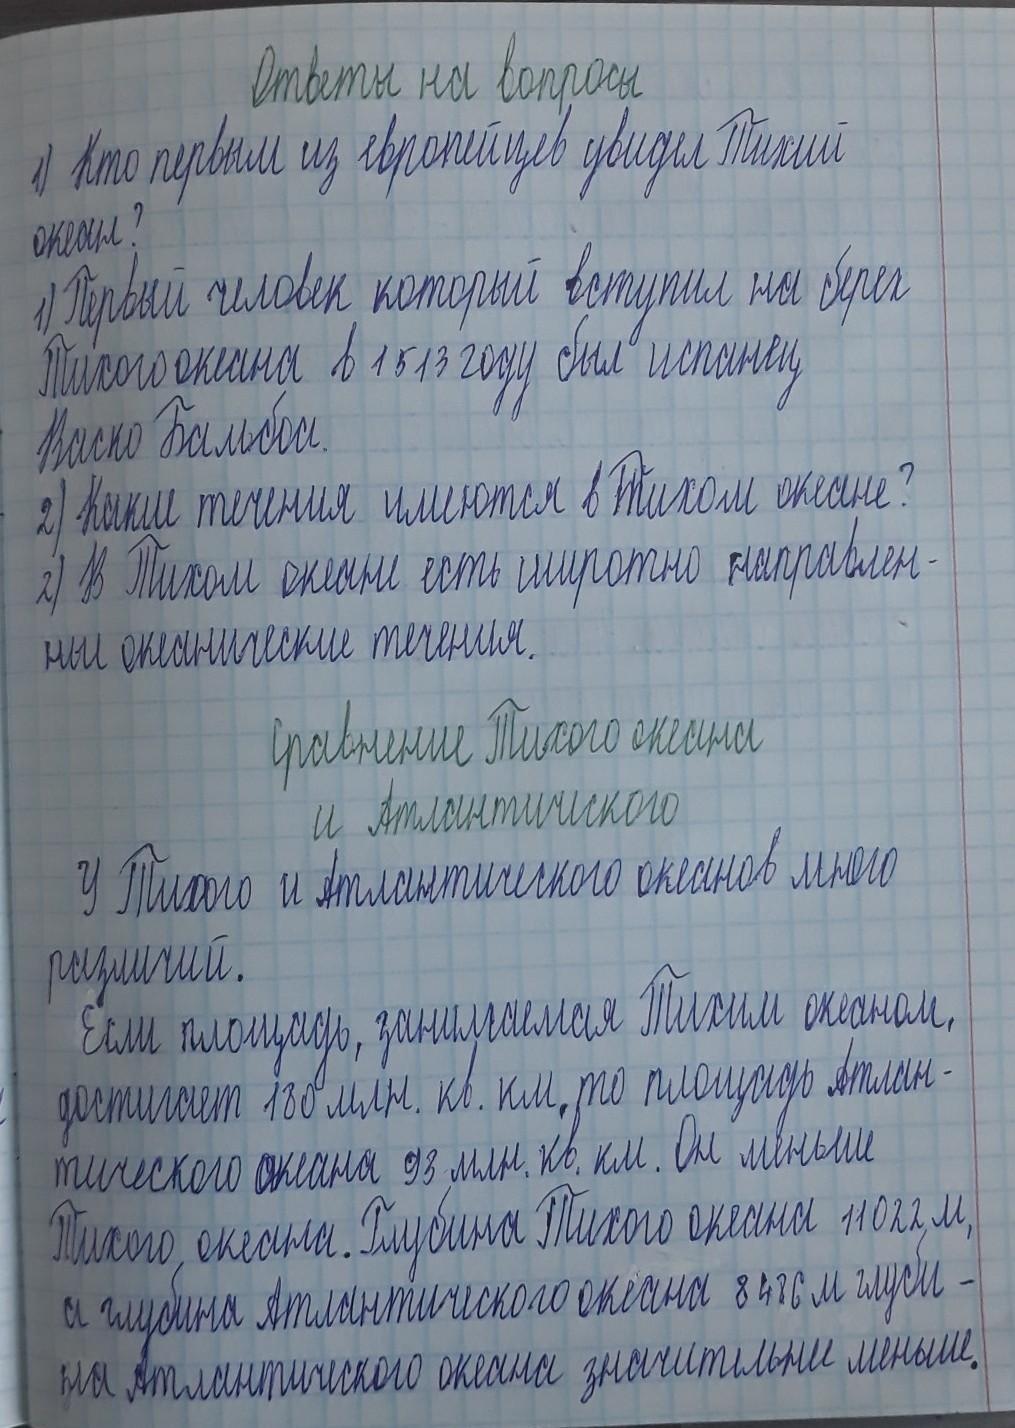 Ответы на вопросы
1) Кто первым из европейцев увидел Тихий
океан?
1) Первый человек который вступил на берег
Тихого океана в 1513 году был испанец
Васко Бальбоа.
2) Какие течения имеются в Тихом океане?
2) В Тихом океане есть широтно направлен-
ные океанические течения.
Сравнение Тихого океана
и Атлантического
У Тихого и Атлантического океанов много
различий.
Если площадь, занимаемая Тихим океаном,
достигает 180 млн. кв. км, то площадь Атлан-
тического океана 93 млн. кв. км. Он меньше
Тихого океана. Глубина Тихого океана 11022 м,
а глубина Атлантического океана 8486 м глуби-
на Атлантического океана значительнее меньше.